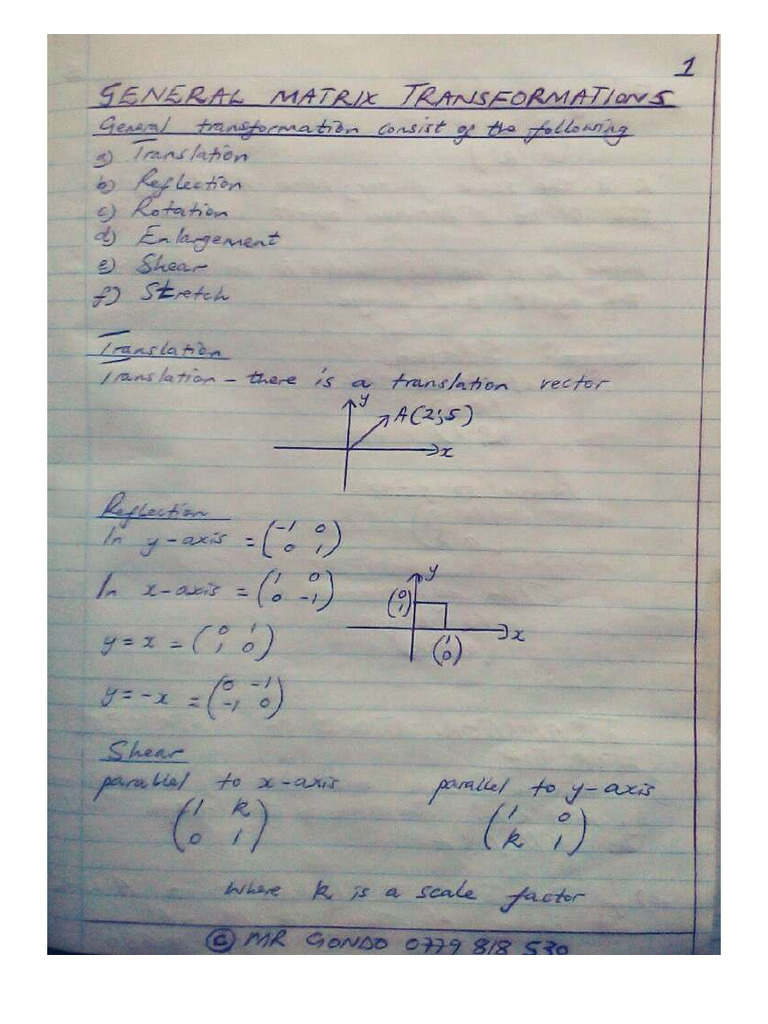 1
GENERAL MATRIX TRANSFORMATIONS
General transformation consist of the following
a) Translation
b) Reflection
c) Rotation
d) Enlargement
e) Shear
f) Stretch
Translation
Translation - there is a translation vector
y
A(2;5)
x
Reflection
In y-axis = (-1 0
0 1)
In x-axis = (1 0
0 -1)
y
(0
1)
x
(1
0)
y = x = (0 1
1 0)
y = -x = (0 -1
-1 0)
Shear
parallel to x-axis parallel to y-axis
(1 k (1 0
0 1) k 1)
where k is a scale factor
© MR GONDO 0779 818 530